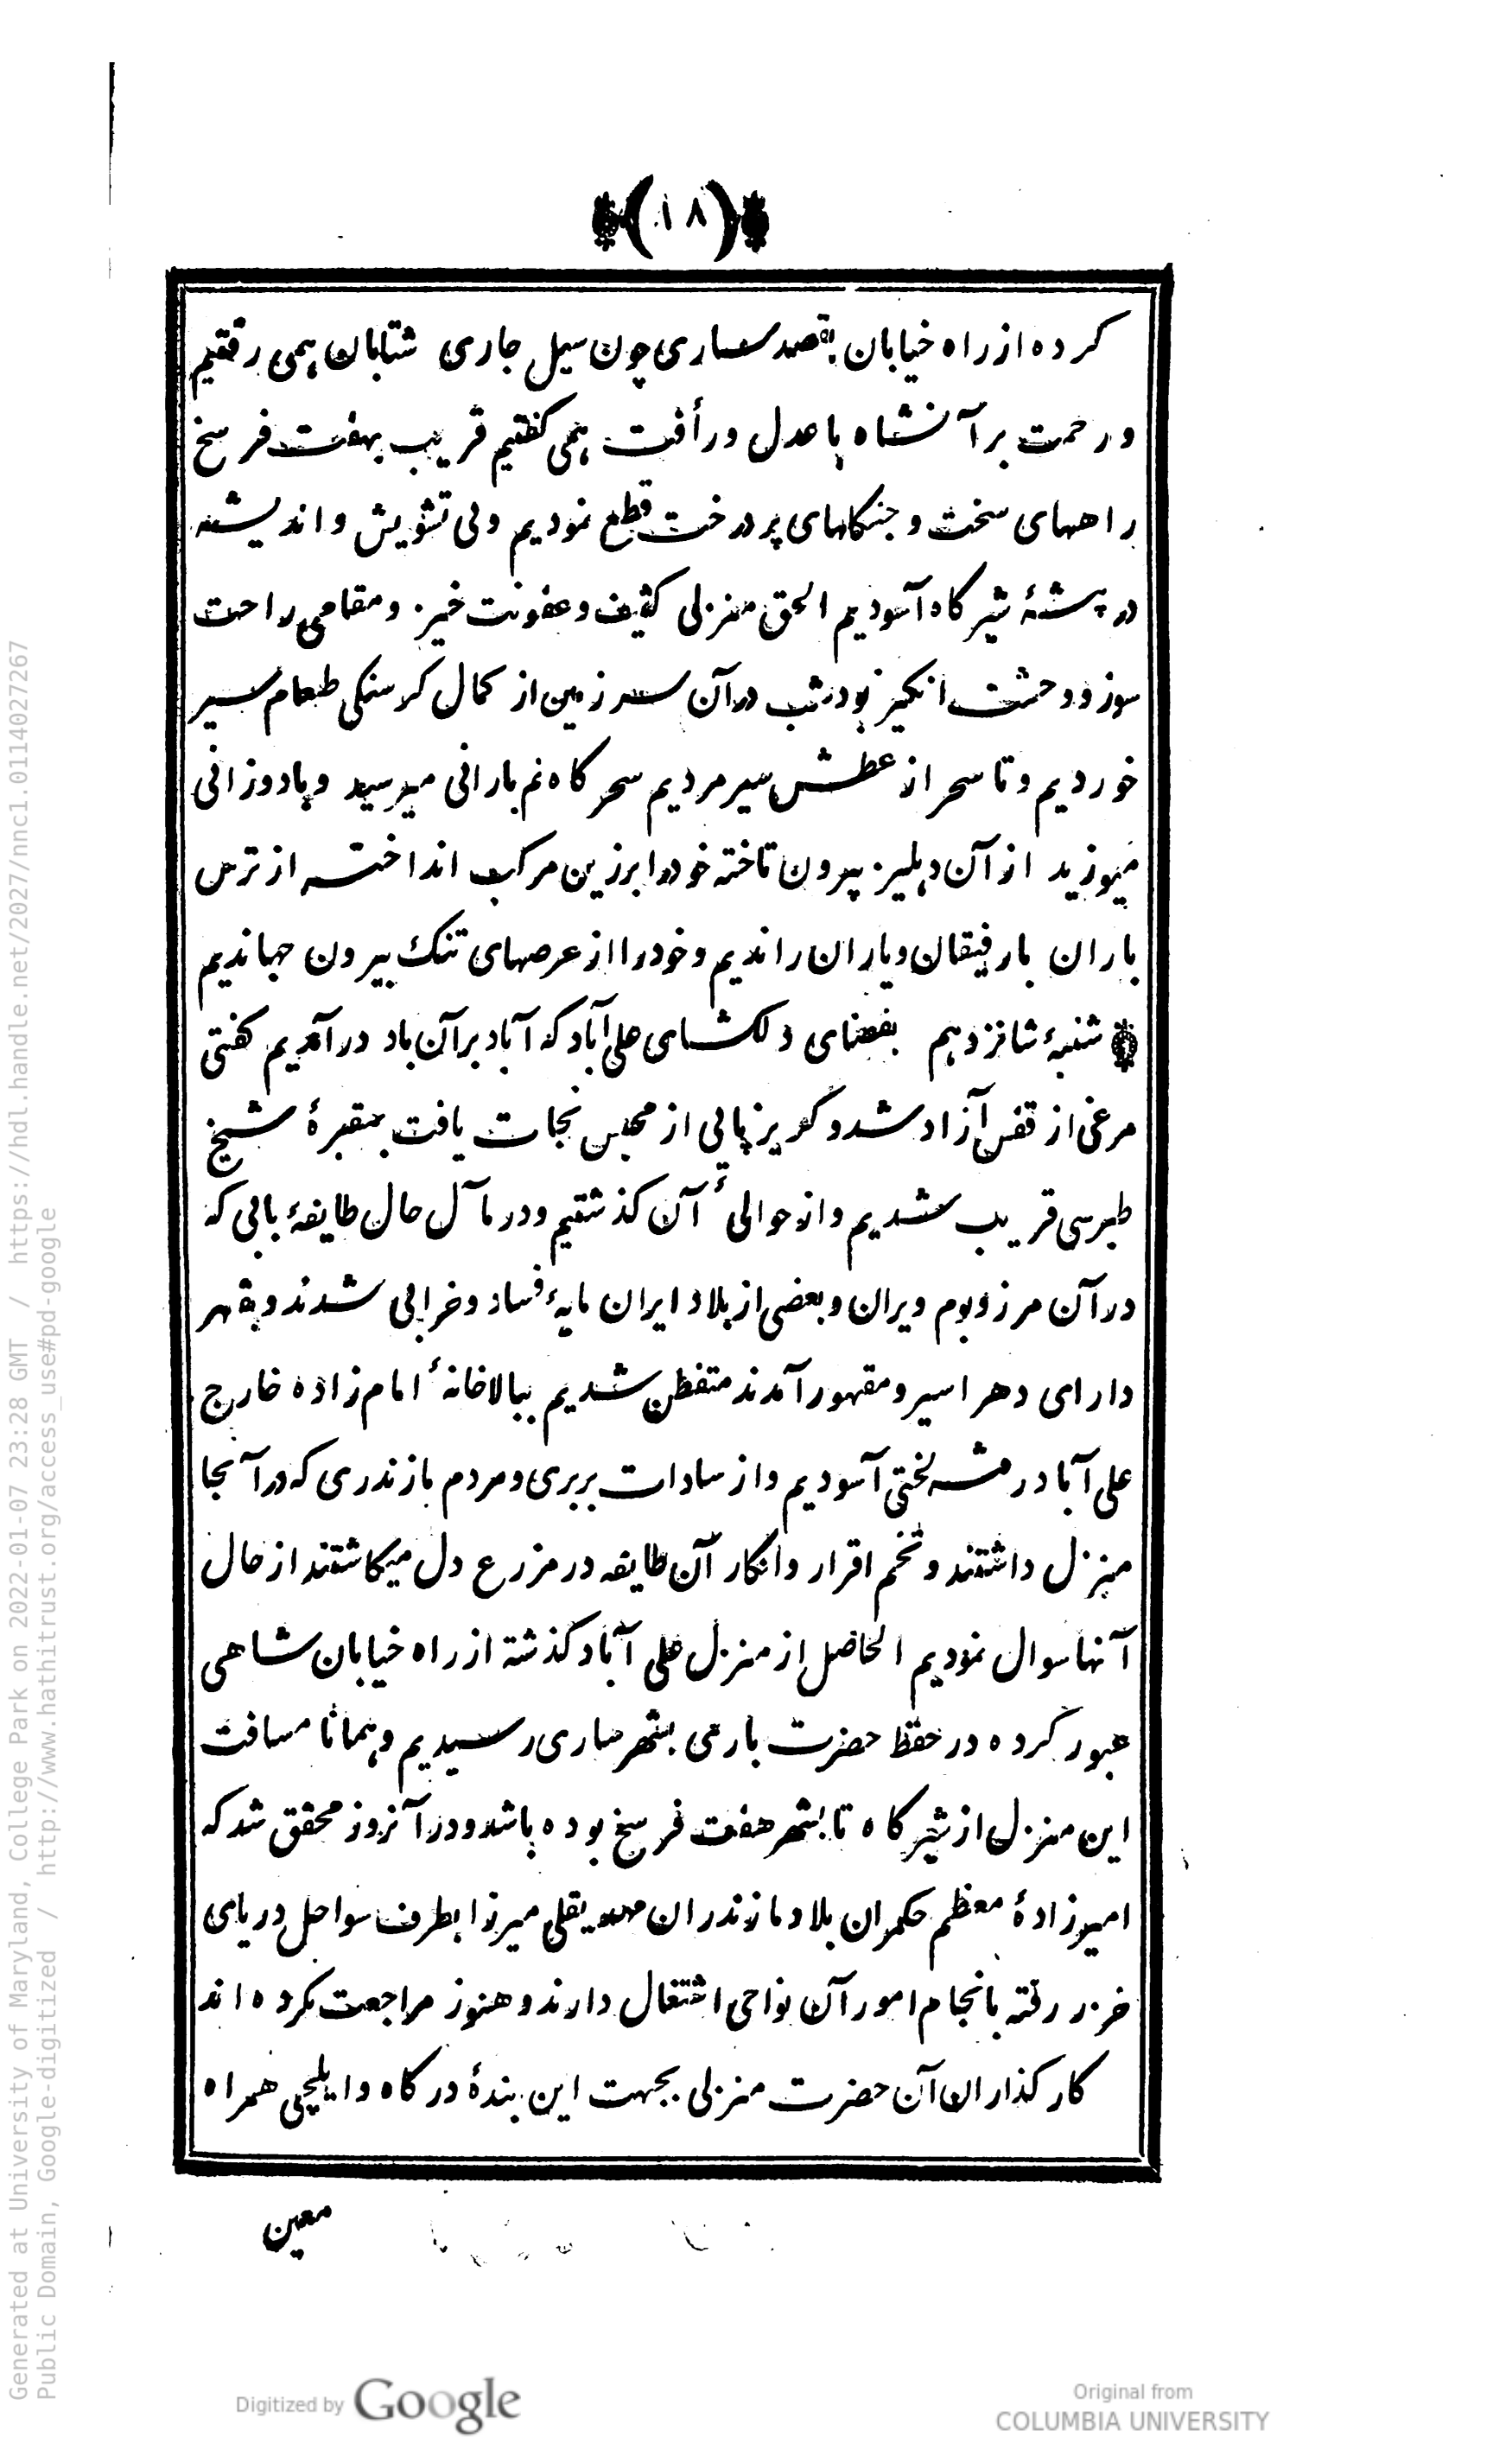 (۱۸)
کرده از راه خیابان بقصد ساری چون سیل جاری شتابان همی رفتیم
ورحمت بر آنشاه با عدل ورأفت همی کفتیم قریب بهفت فرسخ
راههای سخت وجنکلهای پر درخت قطع نمودیم ولی تشویش واندیشه
در پشهٔ شیرکاه آسودیم الحق منزلی کثیف وعفونت خیز ومقامی راحت
سوز ووحشت انکیز بود شب در آن سرزمین از کمال کرسنکی طعام سیر
خوردیم وتا سحر از عطش سیر مردیم سحرکاه نم بارانی میرسید وباد وزانی
میوزید از آن دهلیز بیرون تاخته خودرا برزین مرکب انداخته از ترس
باران بارفیقان ویاران راندیم وخودرا از عرصهای تنک بیرون جهاندیم
شنبهٔ شانزدهم بفضای دلکشای علی آباد که آباد بر آن باد در آمدیم کفتی
مرغی از قفس آزاد شد وکریز پایی از محبس نجات یافت بمقبرهٔ شیخ
طبرسی قریب شدیم واز حوالیٔ آن کذشتیم ودر مآل حال طایفهٔ بابی که
در آن مرز وبوم ویران وبعضی از بلاد ایران مایهٔ فساد وخرابی شدند وبقهر
دارای دهر اسیر ومقهور آمدند متفطن شدیم ببالاخانهٔ امام زاده خارج
علی آباد رفته لختی آسودیم واز سادات بربری ومردم مازندری که در آنجا
منزل داشتند وتخم اقرار وانکار آن طایفه در مزرع دل میکاشتند از حال
آنها سوال نمودیم الحاصل از منزل علی آباد کذشته از راه خیابان شاهی
عبور کرده در حفظ حضرت باری بشهر ساری رسیدیم وهمانا مسافت
این منزل از شیرکاه تا بشهر هفت فرسخ بوده باشد ودر آنروز محقق شد که
امیرزادهٔ معظم حکمران بلاد مازندران مهدیقلی میرزا بطرف سواحل دریای
خزر رفته بانجام امور آن نواحی اشتغال دارند وهنوز مراجعت نکرده اند
کارکذاران آن حضرت منزلی بجهت این بندهٔ درکاه وایلچی همراه
معین
Generated at University of Maryland, College Park on 2022-01-07 23:28 GMT / https://hdl.handle.net/2027/nnc1.0114027267
Public Domain, Google-digitized / http://www.hathitrust.org/access_use#pd-google
Digitized by Google
Original from
COLUMBIA UNIVERSITY